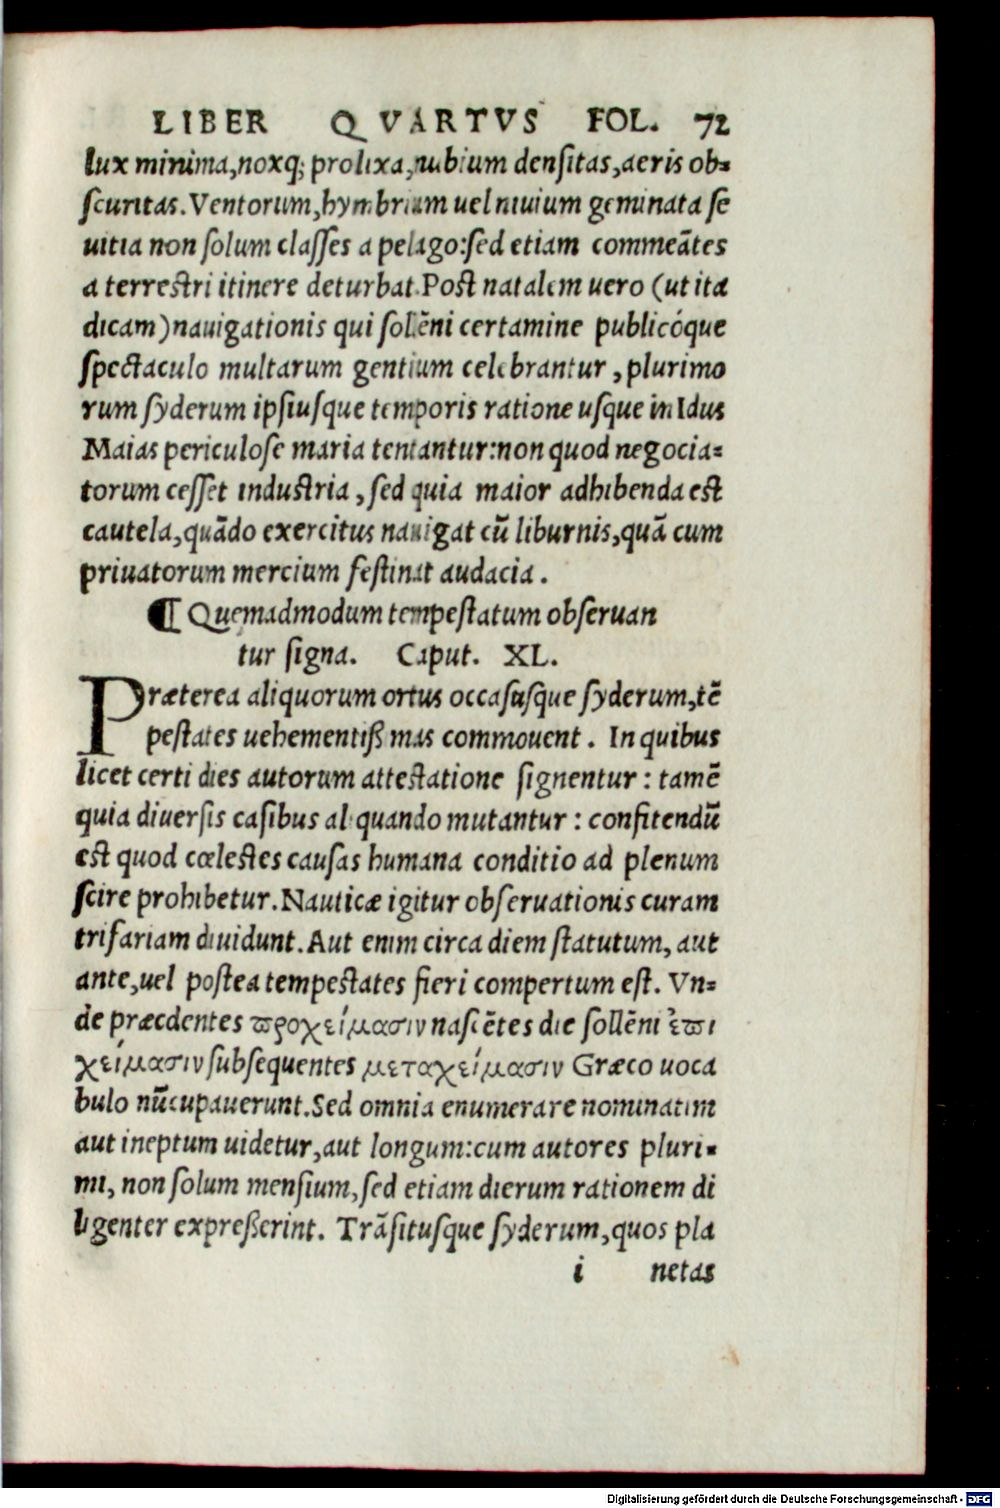 LIBER QVARTVS FOL. 72
lux minima, noxq; prolixa, nubium densitas, aeris ob=
scuritas. Ventorum, hymbrium uel niuium geminata se
uitia non solum classes a pelago: sed etiam commeātes
a terrestri itinere deturbat. Post natalem uero (ut ita
dicam) nauigationis qui sollēni certamine publicóque
spectaculo multarum gentium celebrantur, plurimo
rum syderum ipsiusque temporis ratione usque in Idus
Maias periculose maria tentantur: non quod negocia=
torum cesset industria, sed quia maior adhibenda est
cautela, quādo exercitus nauigat cū liburnis, quā cum
priuatorum mercium festinat audacia.
¶ Quemadmodum tempestatum obseruan
tur signa. Caput. XL.
Præterea aliquorum ortus occasusque syderum, tē
pestates uehementißimas commouent. In quibus
licet certi dies autorum attestatione signentur: tamē
quia diuersis casibus aliquando mutantur: confitendū
est quod cœlestes causas humana conditio ad plenum
scire prohibetur. Nauticæ igitur obseruationis curam
trifariam diuidunt. Aut enim circa diem statutum, aut
ante, uel postea tempestates fieri compertum est. Vn=
de præcdentes προχείμασιν nascētes die sollēni ἐπι
χείμασιν subsequentes μεταχείμασιν Græco uoca
bulo nūcupauerunt. Sed omnia enumerare nominatim
aut ineptum uidetur, aut longum: cum autores pluri=
mi, non solum mensium, sed etiam dierum rationem di
ligenter expreßerint. Trāsitusque syderum, quos pla
i netas
Digitalisierung gefördert durch die Deutsche Forschungsgemeinschaft - DFG